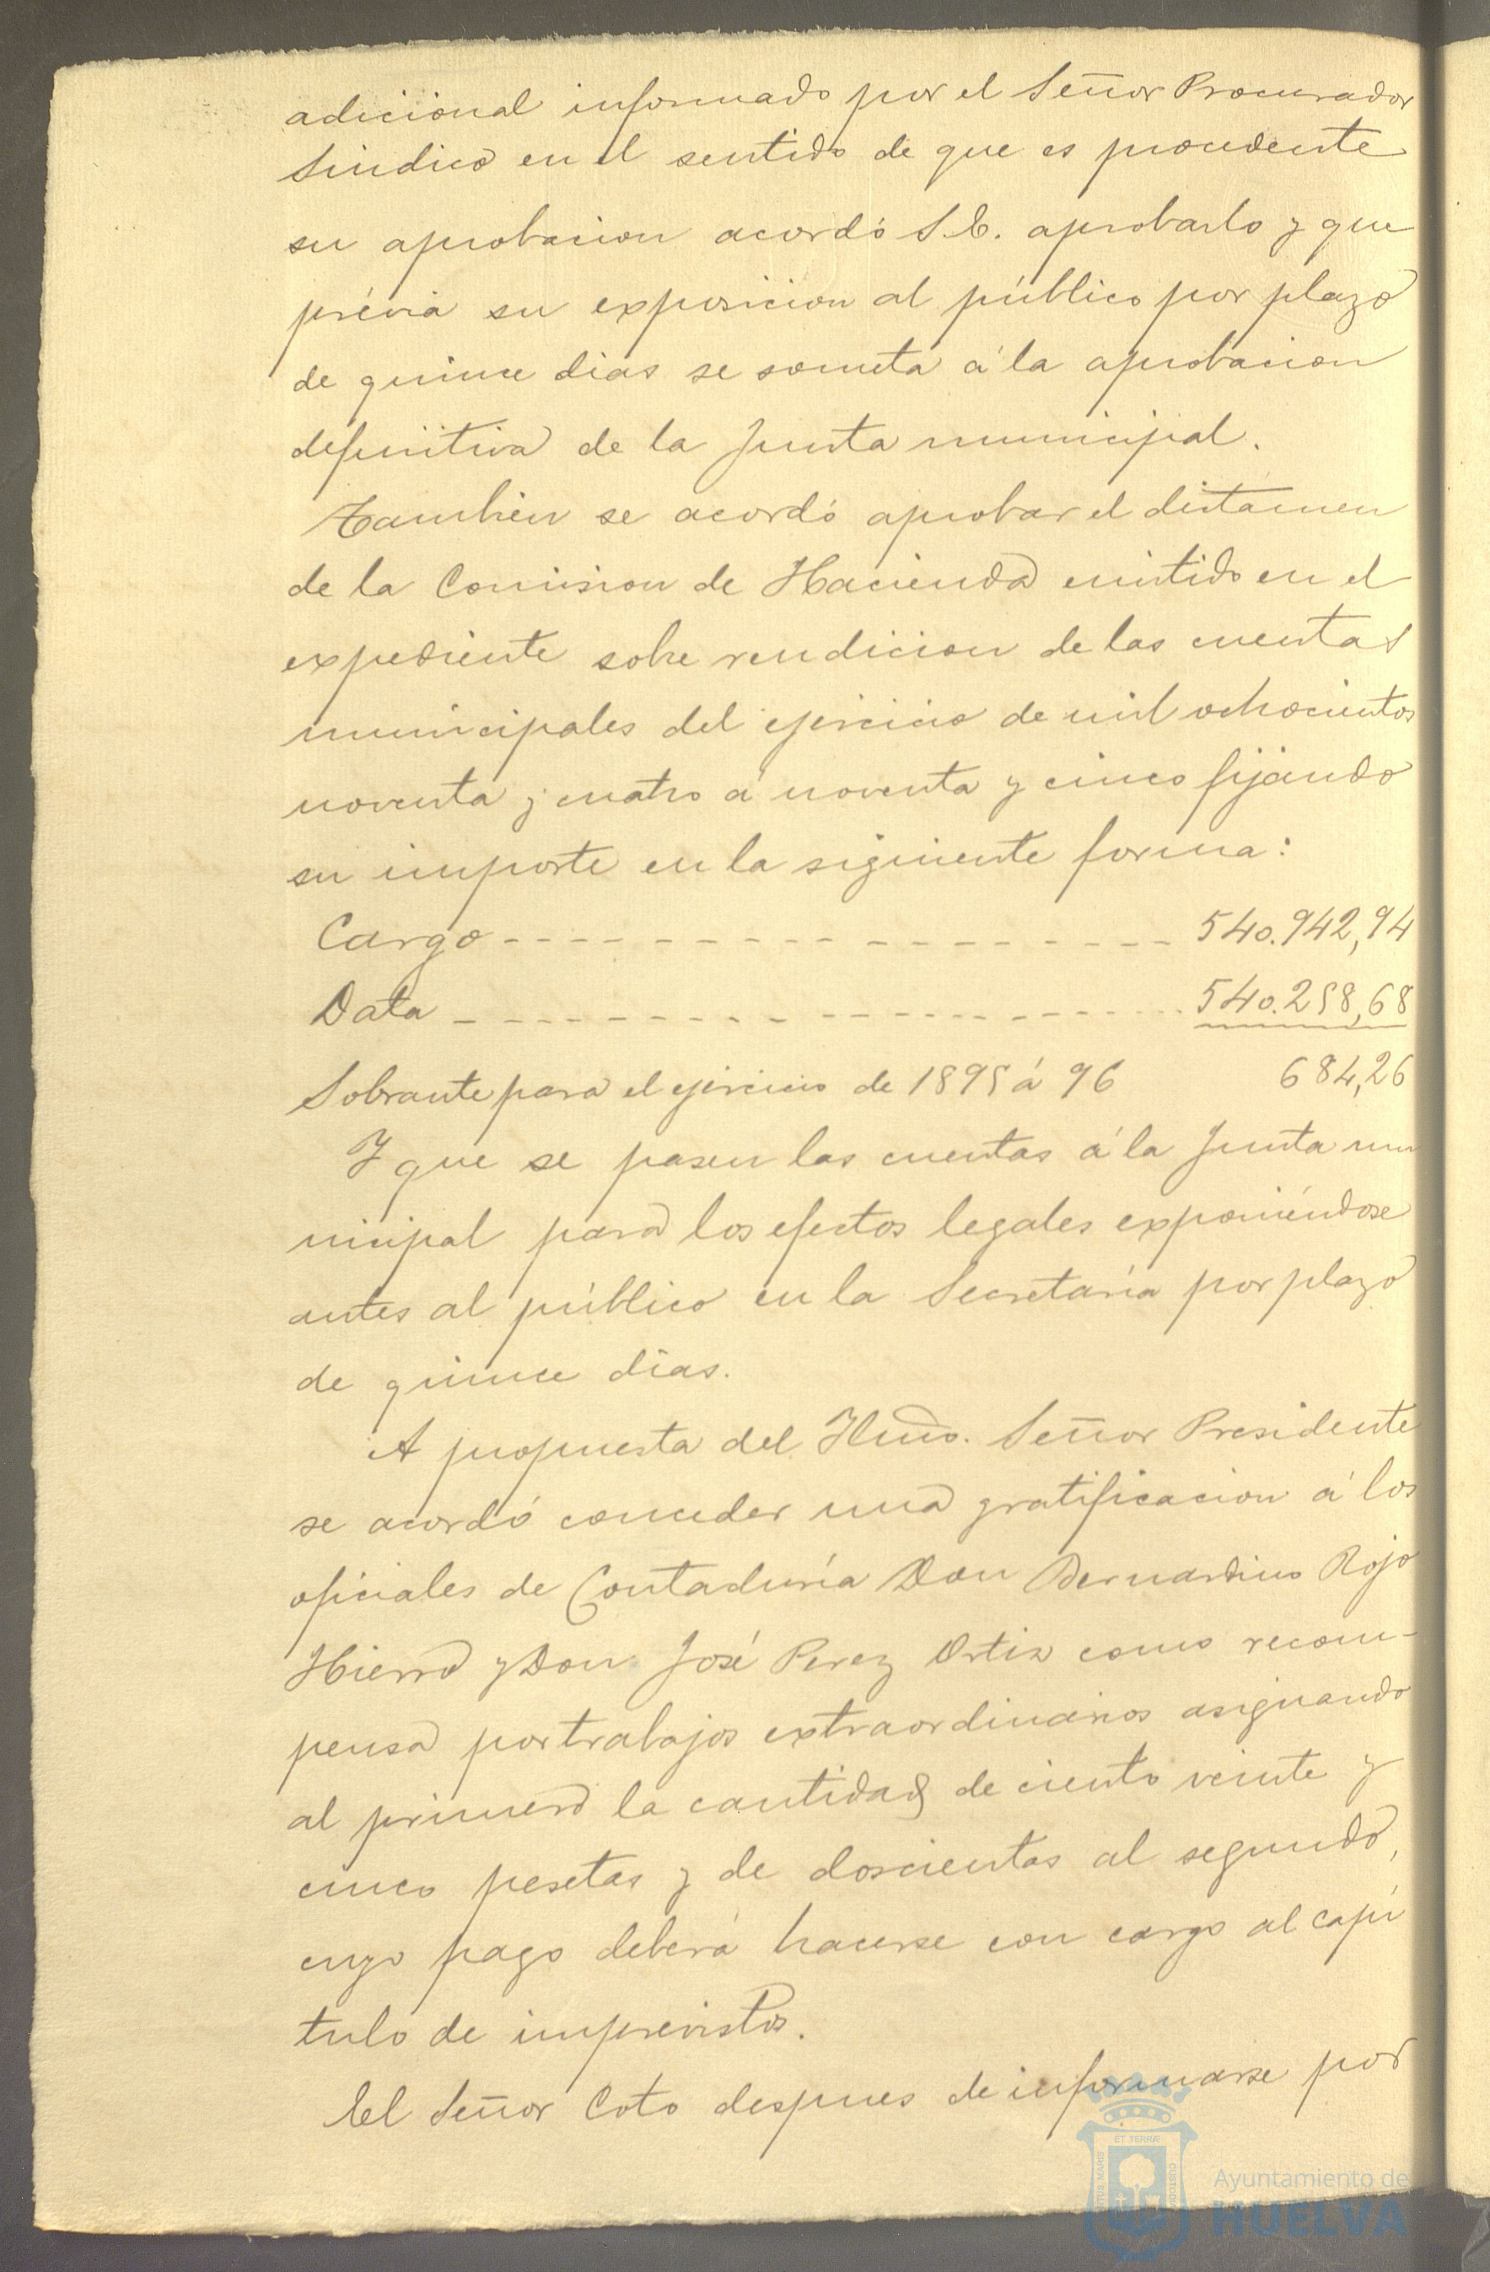 adicional informado por el Señor Procurador
Sindico en el sentido de que es procedente
su aprobacion acordó S.E. aprobarlo y que
prévia su exposicion al público por plazo
de quince dias se someta á la aprobacion
definitiva de la Junta municipal.
Tambien se acordó aprobar el dictámen
de la Comision de Hacienda emitido en el
expediente sobre rendicion de las cuentas
municipales del ejercicio de mil ochocientos
noventa y cuatro á noventa y cinco fijándo
su importe en la siguiente forma:
Cargo 540.942,94
Data 540.258,68
Sobrante para el ejercicio de 1895 á 96 684,26
Y que se pasen las cuentas á la Junta mu
nicipal para los efectos legales exponiéndose
antes al público en la Secretaría por plazo
de quince dias.
A propuesta del Iltmo. Señor Presidente
se acordó conceder una gratificacion á los
oficiales de Contaduría Don Bernardino Rojo
Hierro y Don José Perez Ortiz como recom-
pensa por trabajos extraordinarios asignando
al primero la cantidad de ciento veinte y
cinco pesetas y de doscientas al segundo,
cuyo pago deberá hacerse con cargo al capí
tulo de imprevistos.
El Señor Coto despues de informarse por
ET TERRÆ
Ayuntamiento de
HUELVA